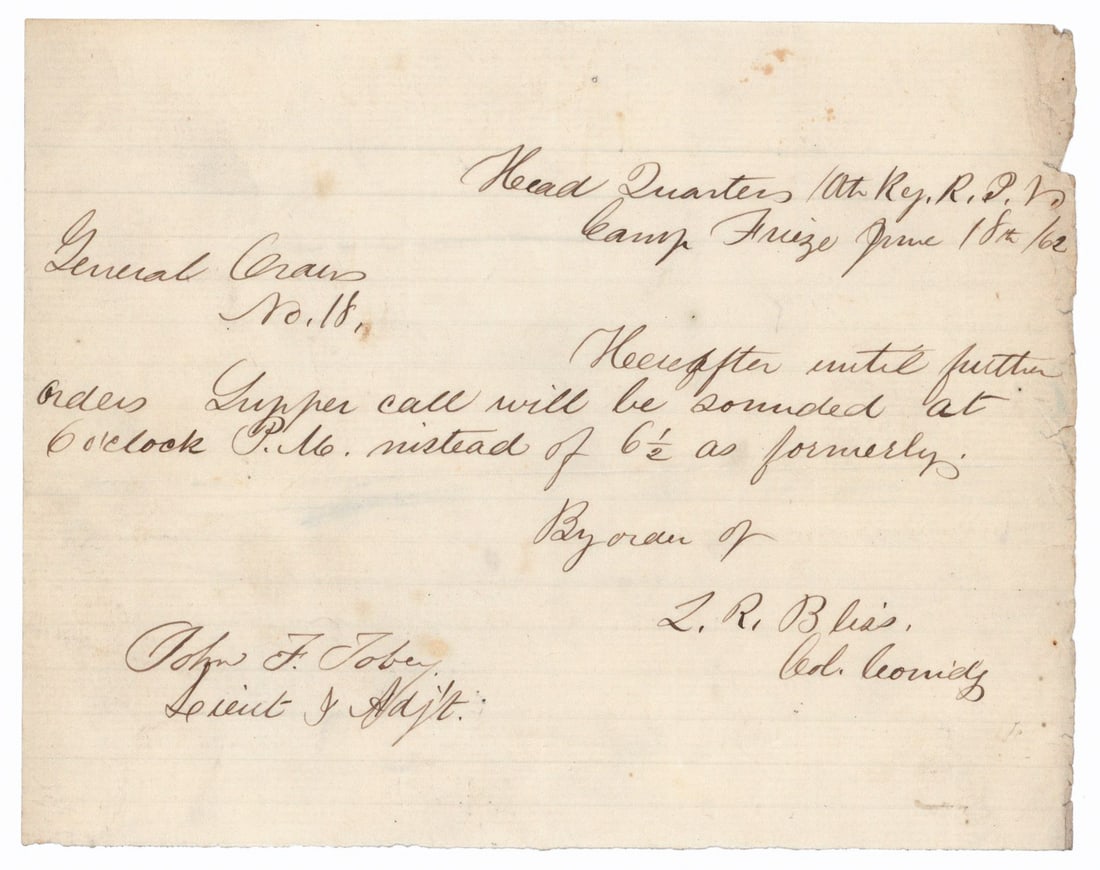 Head Quarters 10th Reg. R. I. V.
Camp Frieze June 18th /62
General Orders
No. 18.
Hereafter until further
orders Supper call will be sounded at
6 o'clock P.M. instead of 6½ as formerly.
By order of
Z. R. Bliss.
Col. Comdg
John F. Tobey
Lieut & Adjt.